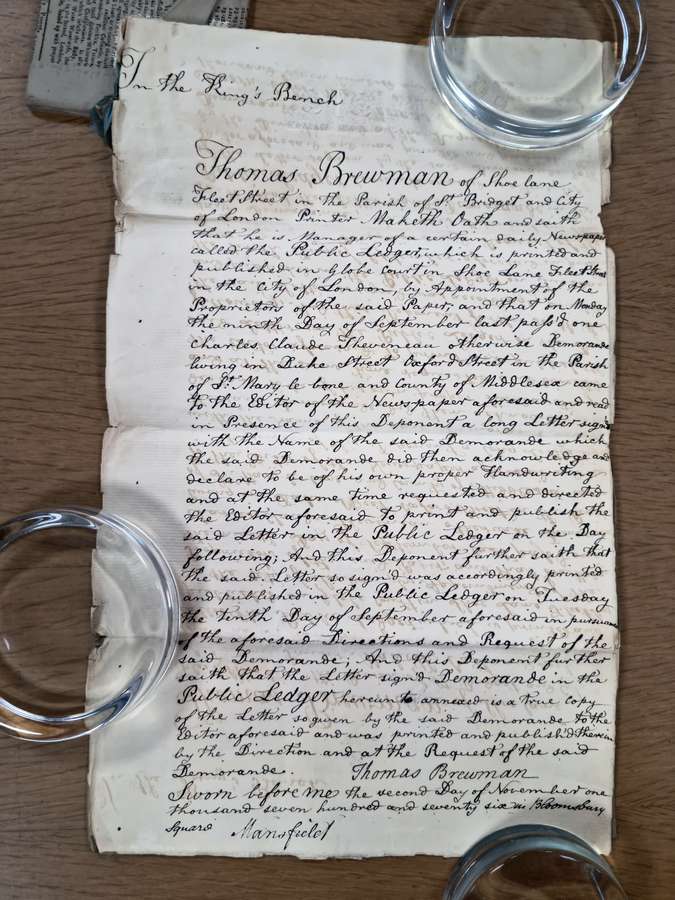 In the King's Bench
Thomas Brewman of Shoe lane
Fleet Street in the Parish of St. Bridget and City
of London Printer Maketh Oath and saith
that he is Manager of a certain daily Newspaper
called the Public Ledger, which is printed and
published in Globe Court in Shoe Lane Fleet Street
in the City of London, by Appointment of the
Proprietors of the said Paper and that on Monday
the ninth Day of September last pass'd one
Charles Claude Theveneau otherwise Demorande
living in Duke Street Oxford Street in the Parish
of St. Mary le bone and County of Middlesex came
to the Editor of the Newspaper aforesaid and read
in Presence of this Deponent a long Letter sign'd
with the Name of the said Demorande which
the said Demorande did then acknowledge and
declare to be of his own proper Handwriting
and at the same time requested and directed
the Editor aforesaid to print and publish the
said Letter in the Public Ledger on the Day
following; And this Deponent further saith that
the said Letter so sign'd was accordingly printed
and published in the Public Ledger on Tuesday
the tenth Day of September aforesaid in pursuance
of the aforesaid Directions and Request of the
said Demorande; And this Deponent further
saith that the Letter sign'd Demorande in the
Public Ledger hereunto annexed is a true copy
of the Letter so given by the said Demorande to the
Editor aforesaid and was printed and publish'd therein
by the Direction and at the Request of the said
Demorande. Thomas Brewman
Sworn before me the second Day of November one
thousand seven hundred and seventy six in Bloomsbury
Square Mansfield